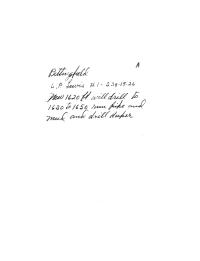 A
L.P. Lewis #1 - S30-15-26
Now 1620 ft will drill to
1630 to 1650, run pipe and
mud and drill deeper